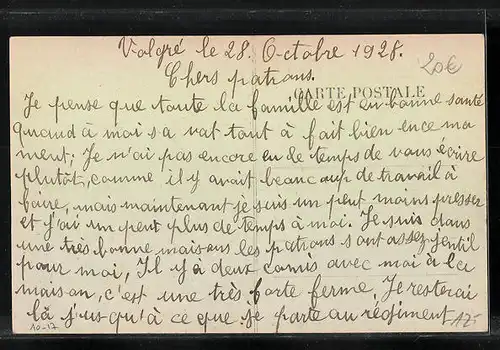 Valgré le 28. Octobre 1928.
20€
Chers patrons.
CARTE POSTALE
Je pense que toute la famille est en bonne santé
quand à moi sa vat tout à fait bien en ce mo
ment; Je n'ai pas encore eu de temps de vous écrire
plutôt, comme il y avait beaucoup de travail à
faire, mais maintenant je suis un peut moins presser
et j'ai un peut plus de temps à moi. Je suis dans
une très bonne maisons les patrons sont assez jentil
pour moi, Il y à deux comis avec moi à la
maison, c'est une très forte ferme, Je resterai
là j'usqu'à ce que je parte au régiment
10-17